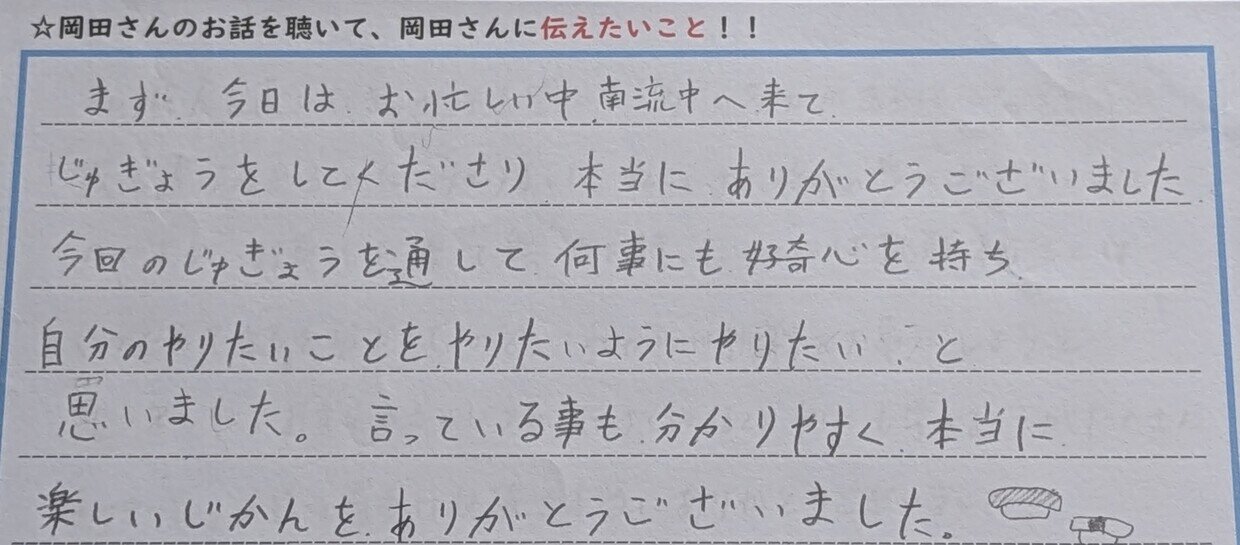 ☆岡田さんのお話を聴いて、岡田さんに伝えたいこと！！
まず 今日は お忙しい中 南流中へ来て
じゅぎょうをしてくださり 本当に ありがとうございました
今回のじゅぎょうを通して 何事にも 好奇心を持ち
自分のやりたいことを やりたいようにやりたい と
思いました。 言っている事も 分かりやすく 本当に
楽しいじかんを ありがとうございました。